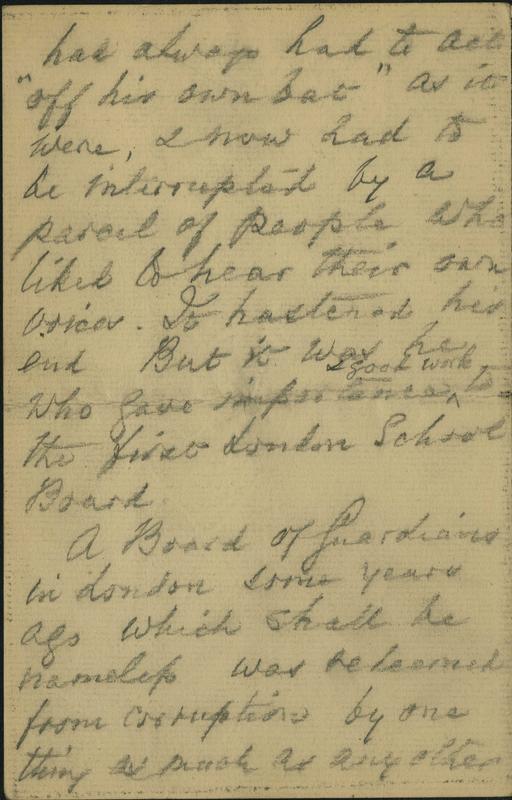 has always had to act
"off his own bat" as it
were, & now had to
be interrupted by a
parcel of people who
liked to hear their own
voices. It hastened his
end But it was he
& good work
who gave importance ^ to
the first London School
Board.
A Board of Guardians
in London some years
ago which shall be
nameless was redeemed
from corruption by one
thing as much as any other